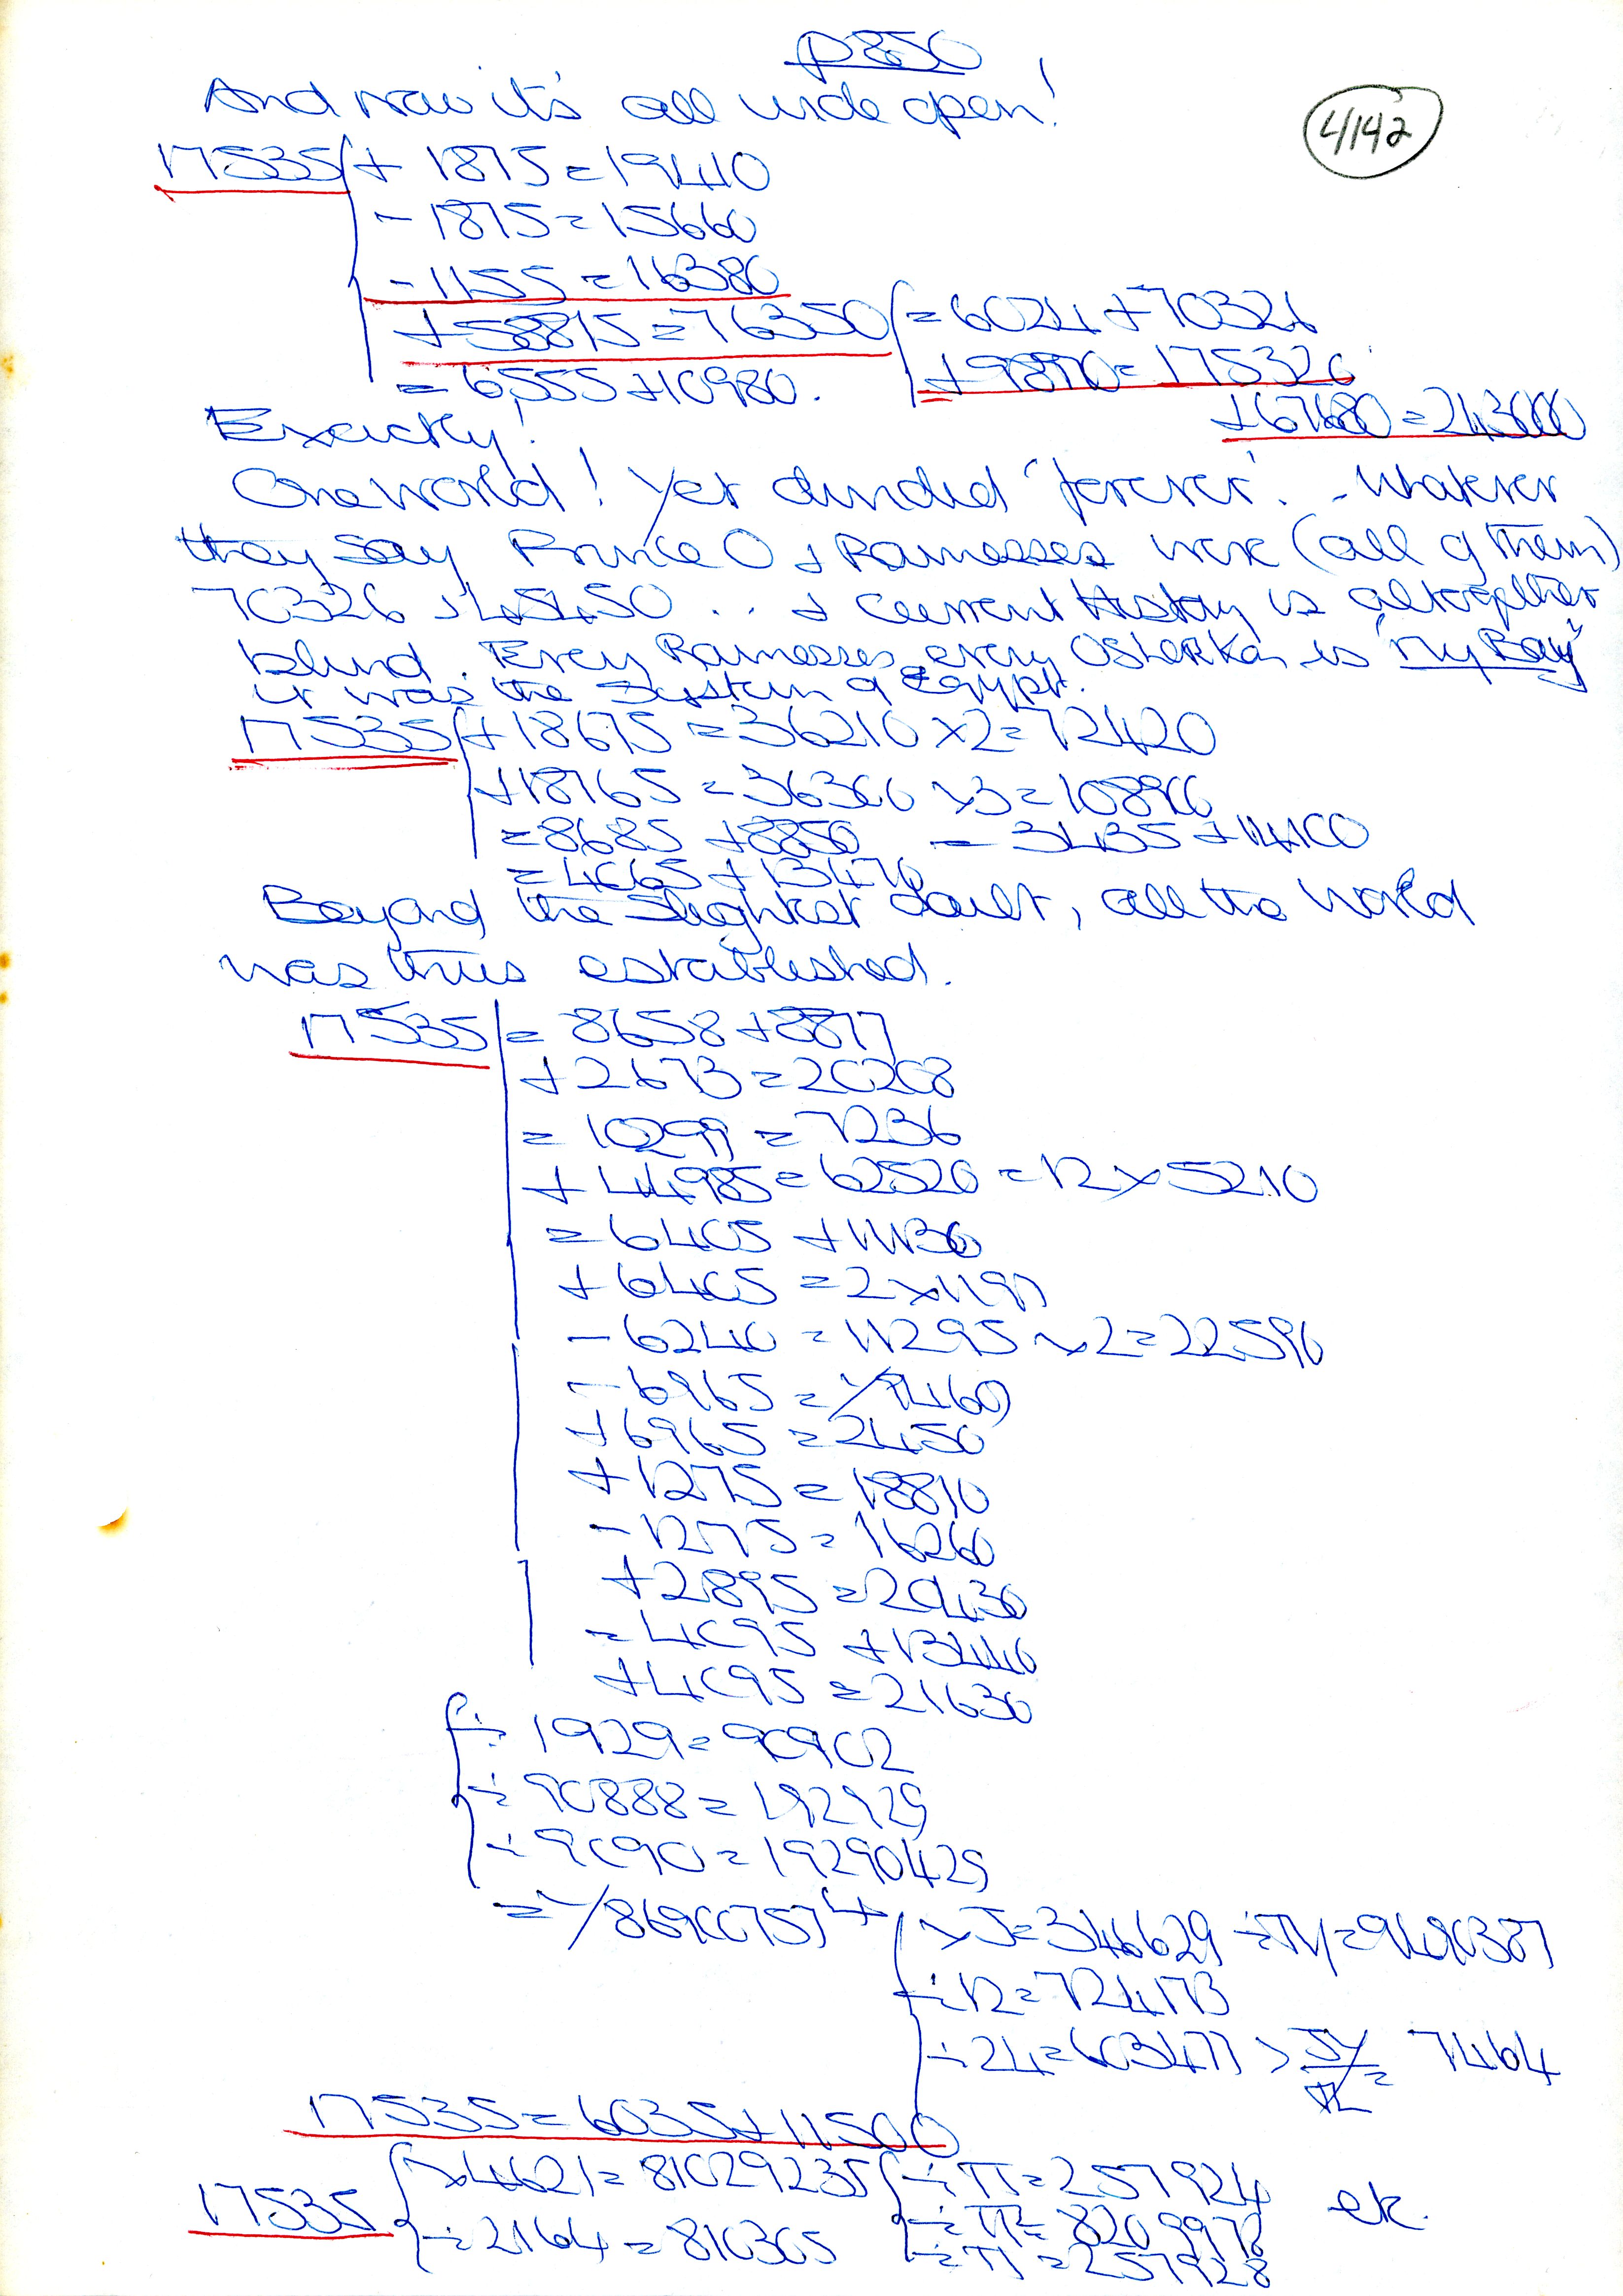 p850
And now it's all wide open!
4142
17535 + 1875 = 19410
- 1875 = 15660
- 1155 = 16380
+ 58815 = 76350 = 6024 + 70326
= 6555 + 10980. + 98970 = 175320
Exactly! + 67680 = 243000
One World! Yet divided 'forever'. - Whatever
they say Prince O & Ramesses were (all of them)
70326 & .. & Current History is altogether
blind. Every Ramesses, every Osterkon is
it was the System of Egypt.
17535 + 18675 = 36210 x 2 = 72420
+ 18765 = 36300 x 3 = 108900
= 8685 + 8850 = 3435 + 14100
= 4065 + 13470
Beyond the Slightest doubt, all the World
was thus established.
17535 = 8658 + 8877
+ 2673 = 20208
= 10299 = 7236
+ 44985 = 62520 = 12 x 5210
= 6405 + 11130
+ 6405 = 2 x 1197
- 6240 = 11295 x 2 = 22590
- 6965 =
+ 6965 = 2450
+ 1275 = 18810
- 1275 = 16260
+ 2895 = 20430
= 4095 + 13440
+ 4095 = 21630
÷ 1929 = 90902
÷ 90888 = 192929
÷ 9090 = 19290429
x J = 346629 ÷
÷ 12 = 724173
÷ 24 = 603477 7464
17535 = 6035 + 11500
17535 x 4621 = 81029235 ÷ π = 257924 etc.
÷ 2164 = 810305 ÷ π = 257928